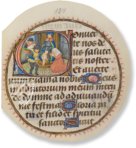 Conuer
te nos de
us saluta
noster
et auerte
nobis
adiutorium meum inten
de dne ad adiuuandu
me festina Gloria pa
tri et filio et spiritui
sancto